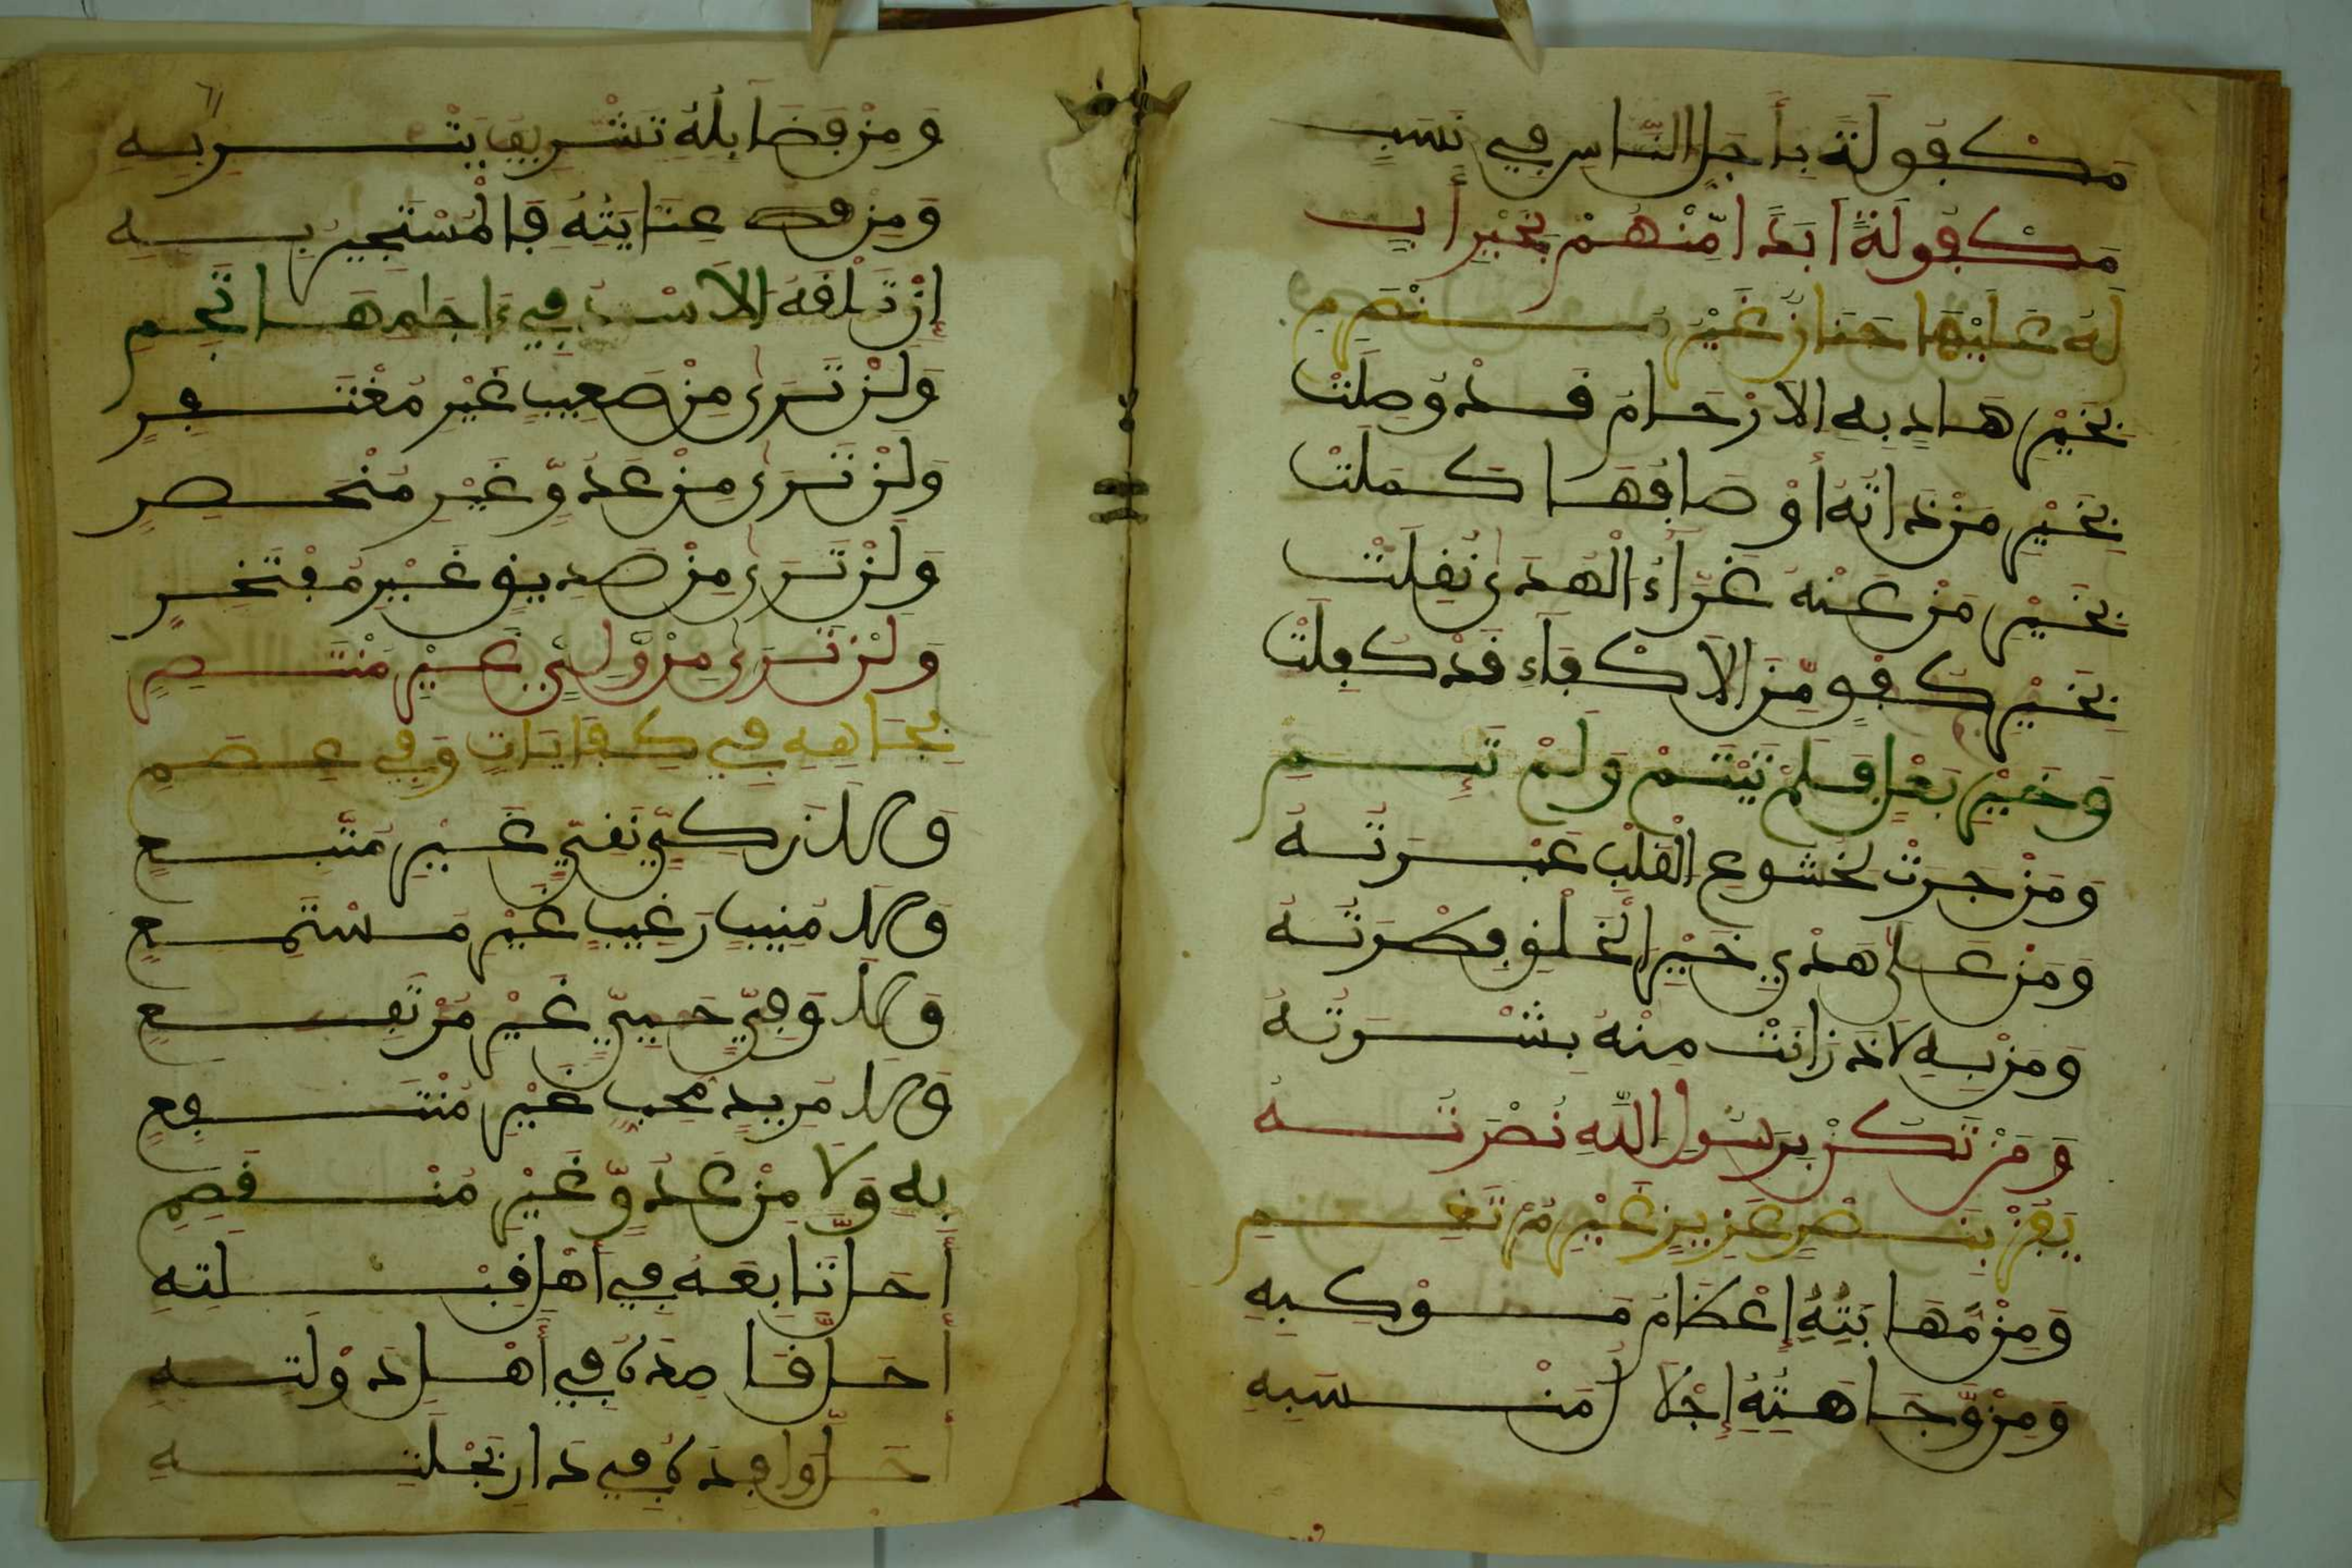 مَكْفُولَةً بِأَجَلِّ النَّاسِ فِي نَسَبٍ
مَكْفُولَةً أَبَدًا مِّنْهُمْ بِخَيْرِ أَبٍ
لَهُ عَلَيْهَا حَنَانٌ غَيْرُ مُنْصَرِمِ
بِخَيْرِ هَادٍ بِهِ الْأَرْحَامُ قَدْ وُصِلَتْ
بِخَيْرِ مَنْ ذَاتُهُ أَوْصَافُهَا كَمُلَتْ
بِخَيْرِ مَنْ عَنْهُ غَرَّاءُ الْهُدَى نُقِلَتْ
بِخَيْرِ كُفْوٍ مِّنَ الْأَكْفَاءِ قَدْ كُفِلَتْ
وَخَيْرِ بَعْلٍ فَلَمْ تَيْتَمْ وَلَمْ تَئِمِ
وَمَنْ جَرَتْ لِخُشُوعِ الْقَلْبِ عَبْرَتُهُ
وَمَنْ عَلَى هَدْيِ خَيْرِ الْخَلْقِ فِكْرَتُهُ
وَمَنْ بِهِ لَاذَ زَانَتْ مِنْهُ بِشْرَتُهُ
وَمَنْ تَكُنْ بِرَسُولِ اللَّهِ نُصْرَتُهُ
يَفُزْ بِنَصْرٍ عَزِيزٍ غَيْرِ
وَمِنْ مَهَابَتِهِ إِعْظَامُ مَوْكِبِهِ
وَمِنْ وَّجَاهَتِهِ إِجْلَالُ مَنْسَبِهِ
وَمِنْ فَضَائِلِهِ تَشْرِيفُ يَثْرِبِهِ
وَمِنْ عِنَايَتِهِ فَالْمُسْتَجِيرُ بِهِ
إِنْ تَلْقَهُ الْأُسْدُ فِي ءَاجَامِهَا تَجِمِ
وَلَنْ تَرَى مِنْ مَعِيبٍ غَيْرِ مُغْتَفِرِ
وَلَنْ تَرَى مِنْ عَدُوٍّ غَيْرِ مُنْحَصِرِ
وَلَنْ تَرَى مِنْ صَدِيقٍ غَيْرِ مُفْتَخِرِ
وَلَنْ تَرَى مِنْ وَّلِيٍّ غَيْرِ مُنْتَصِرِ
بِجَاهِهِ فِي كِفَايَاتٍ وَفِي عِصَمِ
وَلَا زَكِيٍّ تَقِيٍّ غَيْرِ مُتَّبِعِ
وَلَا مُنِيبٍ رَغِيبٍ غَيْرِ مُسْتَمِعِ
وَلَا وَفِيٍّ حَيِيٍّ غَيْرِ مُرْتَفِعِ
وَلَا مُرِيدٍ مُحِبٍّ غَيْرِ مُنْتَفِعِ
بِهِ وَلَا مِنْ عَدُوٍّ غَيْرِ مُنْقَصِمِ
أَحَلَّ تَابِعَهُ فِي أَهْلِ قِبْلَتِهِ
أَحَلَّ قَاصِدَهُ فِي أَهْلِ دَوْلَتِهِ
أَحَلَّ وَافِدَهُ فِي دَارِ نِحْلَتِهِ